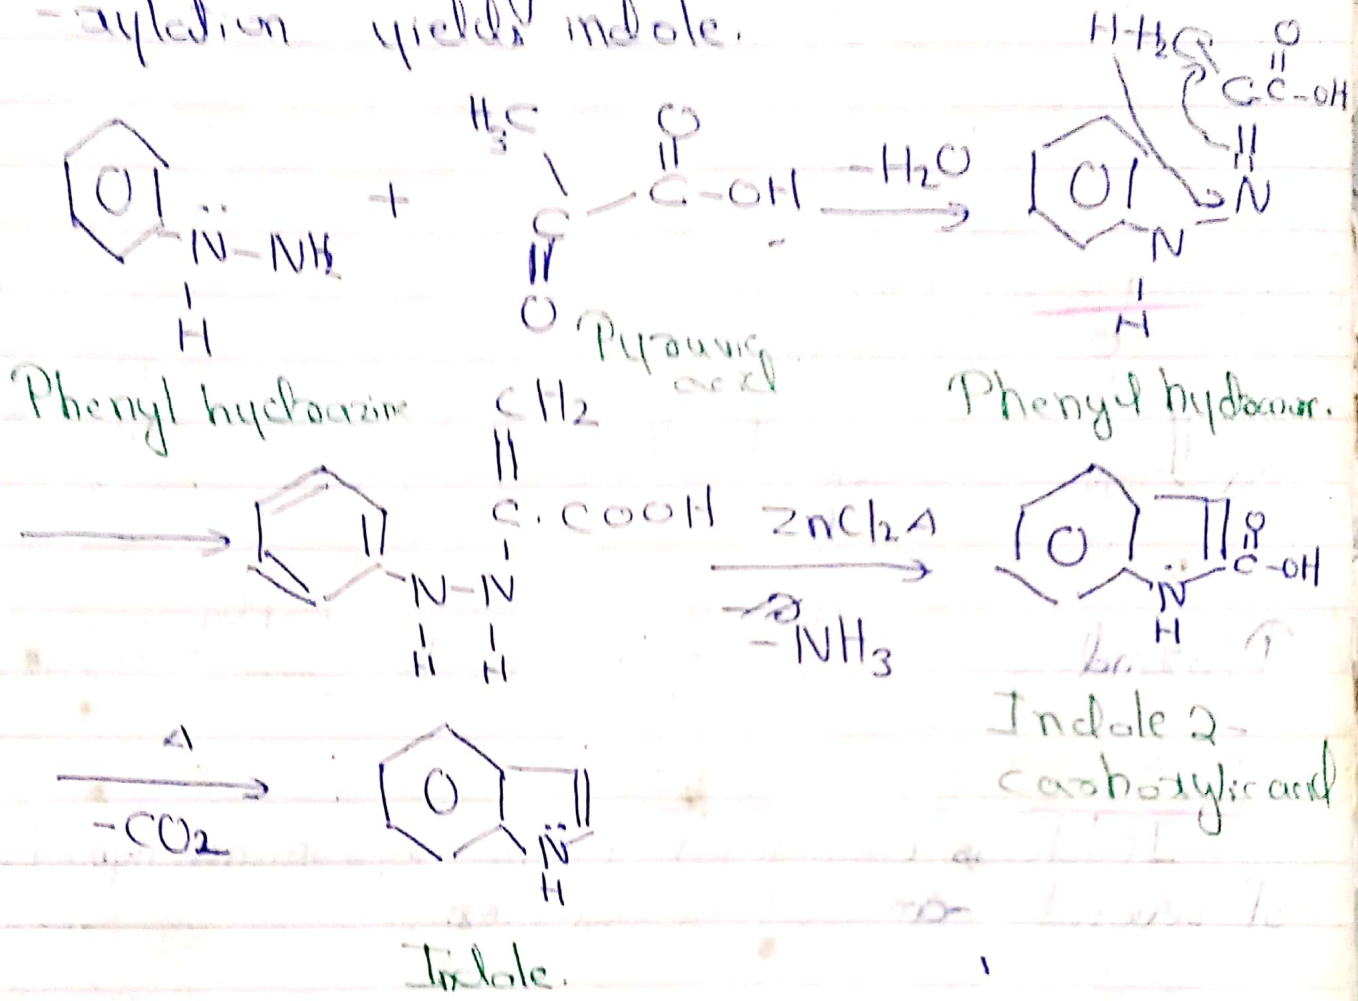 -xylation yields indole.
H-H₂C O
C C-OH
H₃C O
+ C-OH -H₂O O N
O N̈-NH₂ C N
H O H
Pyruvic acid
Phenyl hydrazine CH₂ Phenyl hydrazone.
C.COOH ZnCl₂ Δ O O
N-N -NH₃ N̈ C-OH
H H H
Indole 2-
carboxylic acid
Δ
-CO₂ O N̈
H
Indole.